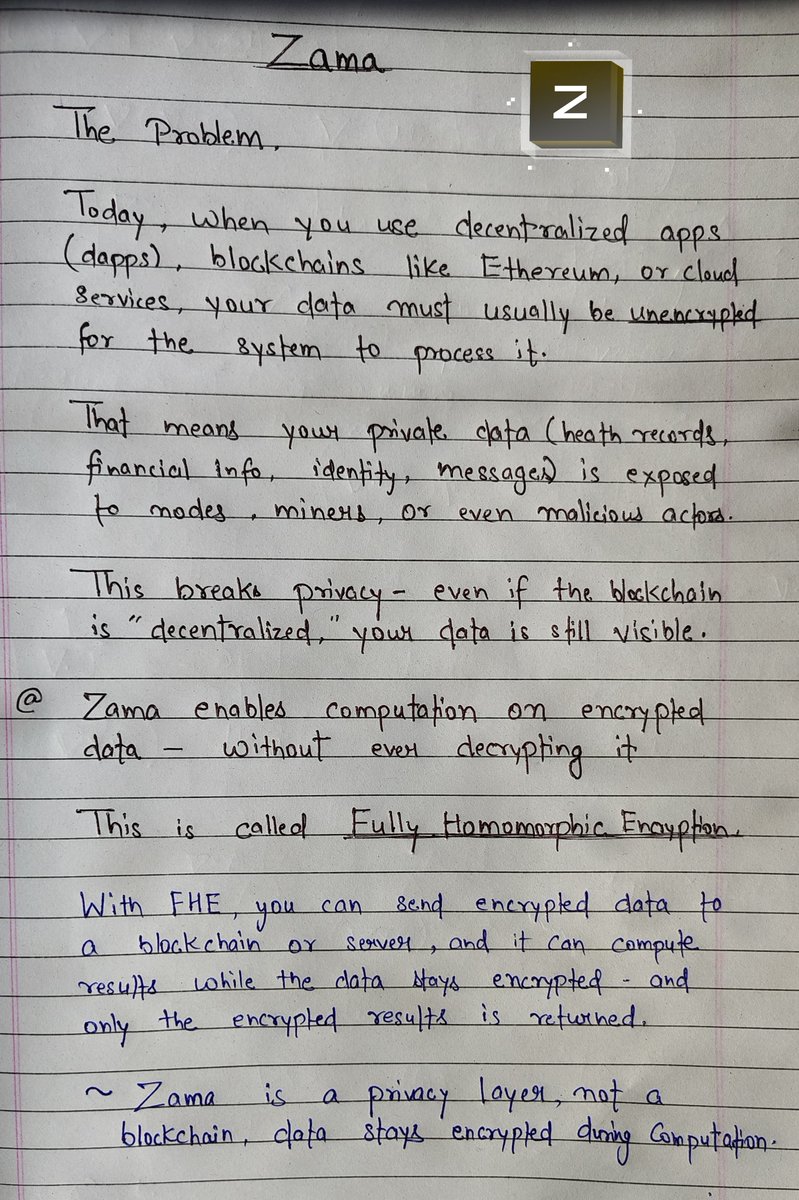 Zama
Z
The Problem.
Today, when you use decentralized apps
(dapps), blockchains like Ethereum, or cloud
services, your data must usually be unencrypted
for the system to process it.
That means your private data (heath records,
financial info, identity, messages) is exposed
to nodes, miners, or even malicious actors.
This breaks privacy - even if the blockchain
is "decentralized," your data is still visible.
@ Zama enables computation on encrypted
data - without ever decrypting it
This is called Fully Homomorphic Encryption.
With FHE, you can send encrypted data to
a blockchain or server, and it can compute
results while the data stays encrypted - and
only the encrypted results is returned.
~ Zama is a privacy layer, not a
blockchain, data stays encrypted during Computation.